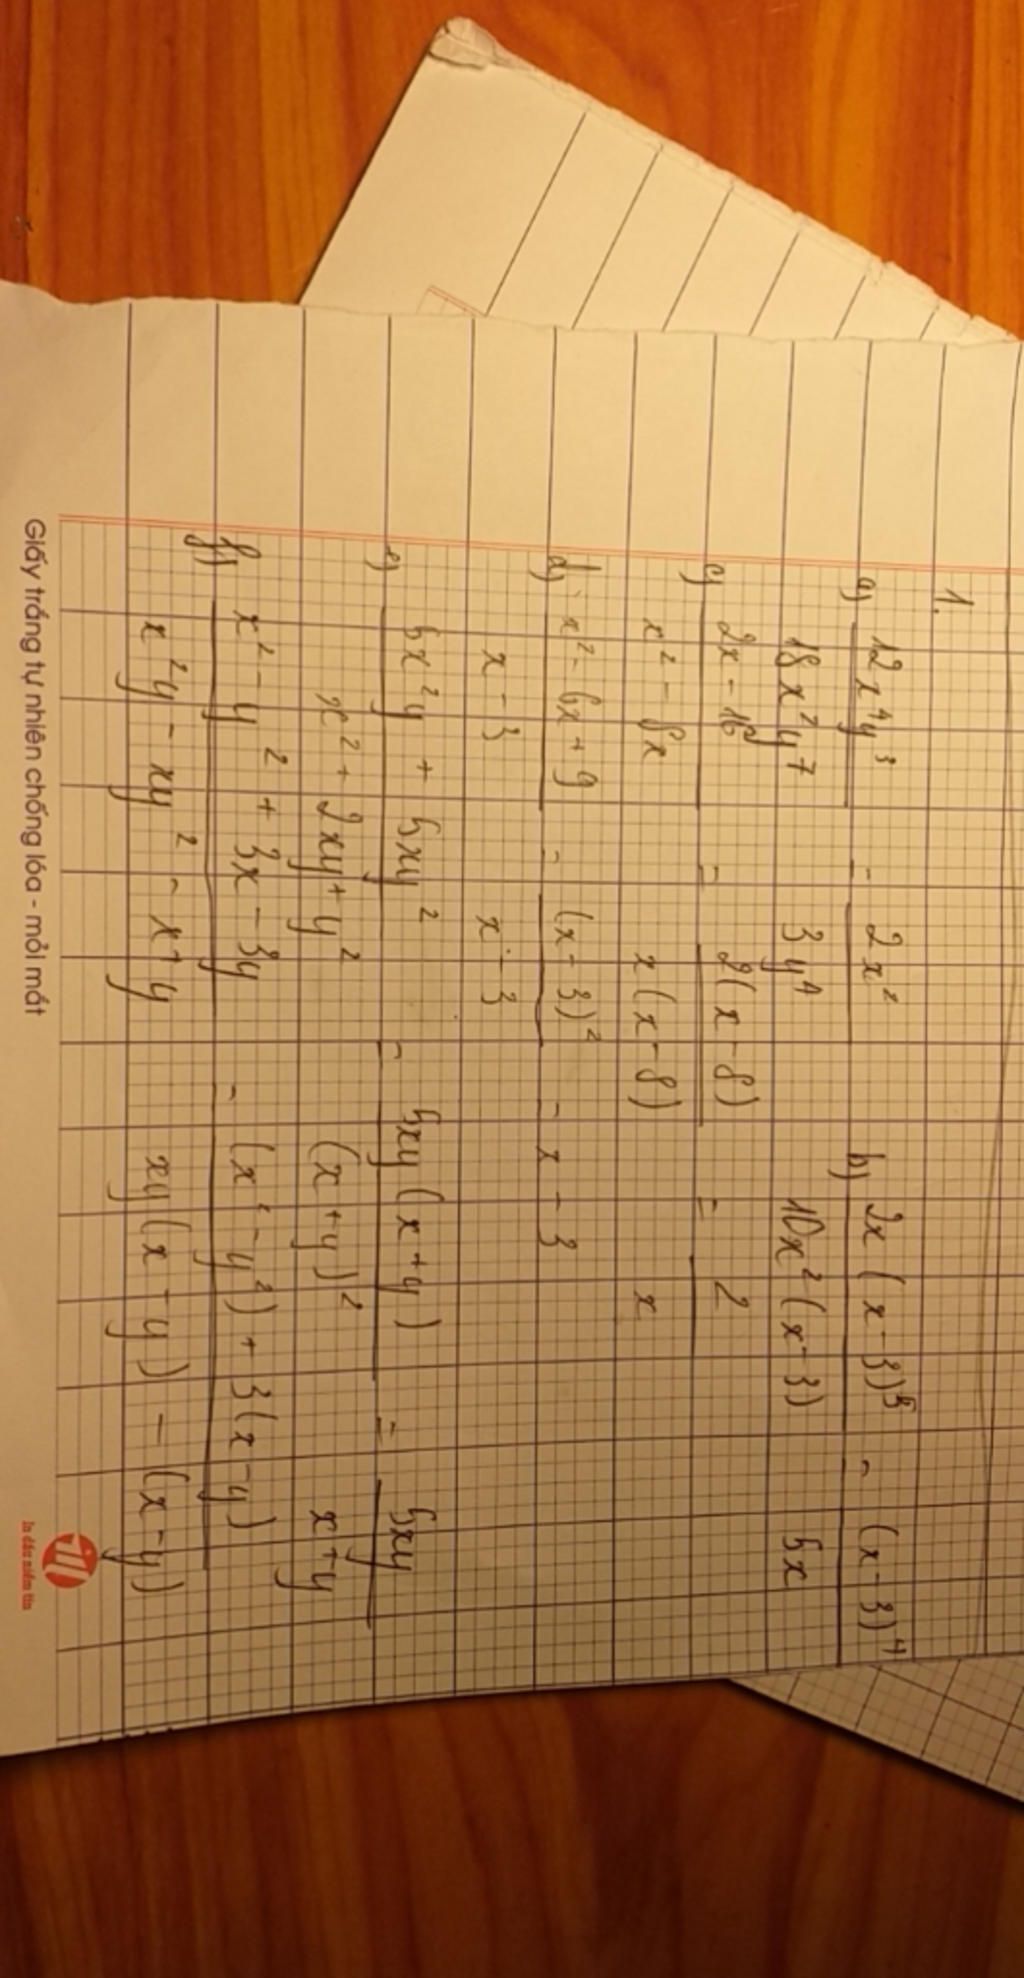 1.
a) 12x⁴y³ / 18x²y⁷ = 2x² / 3y⁴ b) 2x(x-3)⁵ / 10x²(x-3) = (x-3)⁴ / 5x
c) 2x-16 / x²-8x = 2(x-8) / x(x-8) = 2 / x
d) x²-6x+9 / x-3 = (x-3)² / x-3 = x-3
e) 5x²y + 5xy² / x²+2xy+y² = 5xy(x+y) / (x+y)² = 5xy / x+y
f) x²-y²+3x-3y / x²y-xy²-x+y = (x²-y²)+3(x-y) / xy(x-y)-(x-y)
Giấy trắng tự nhiên chống lóa - mỏi mắt
In dấu niềm tin